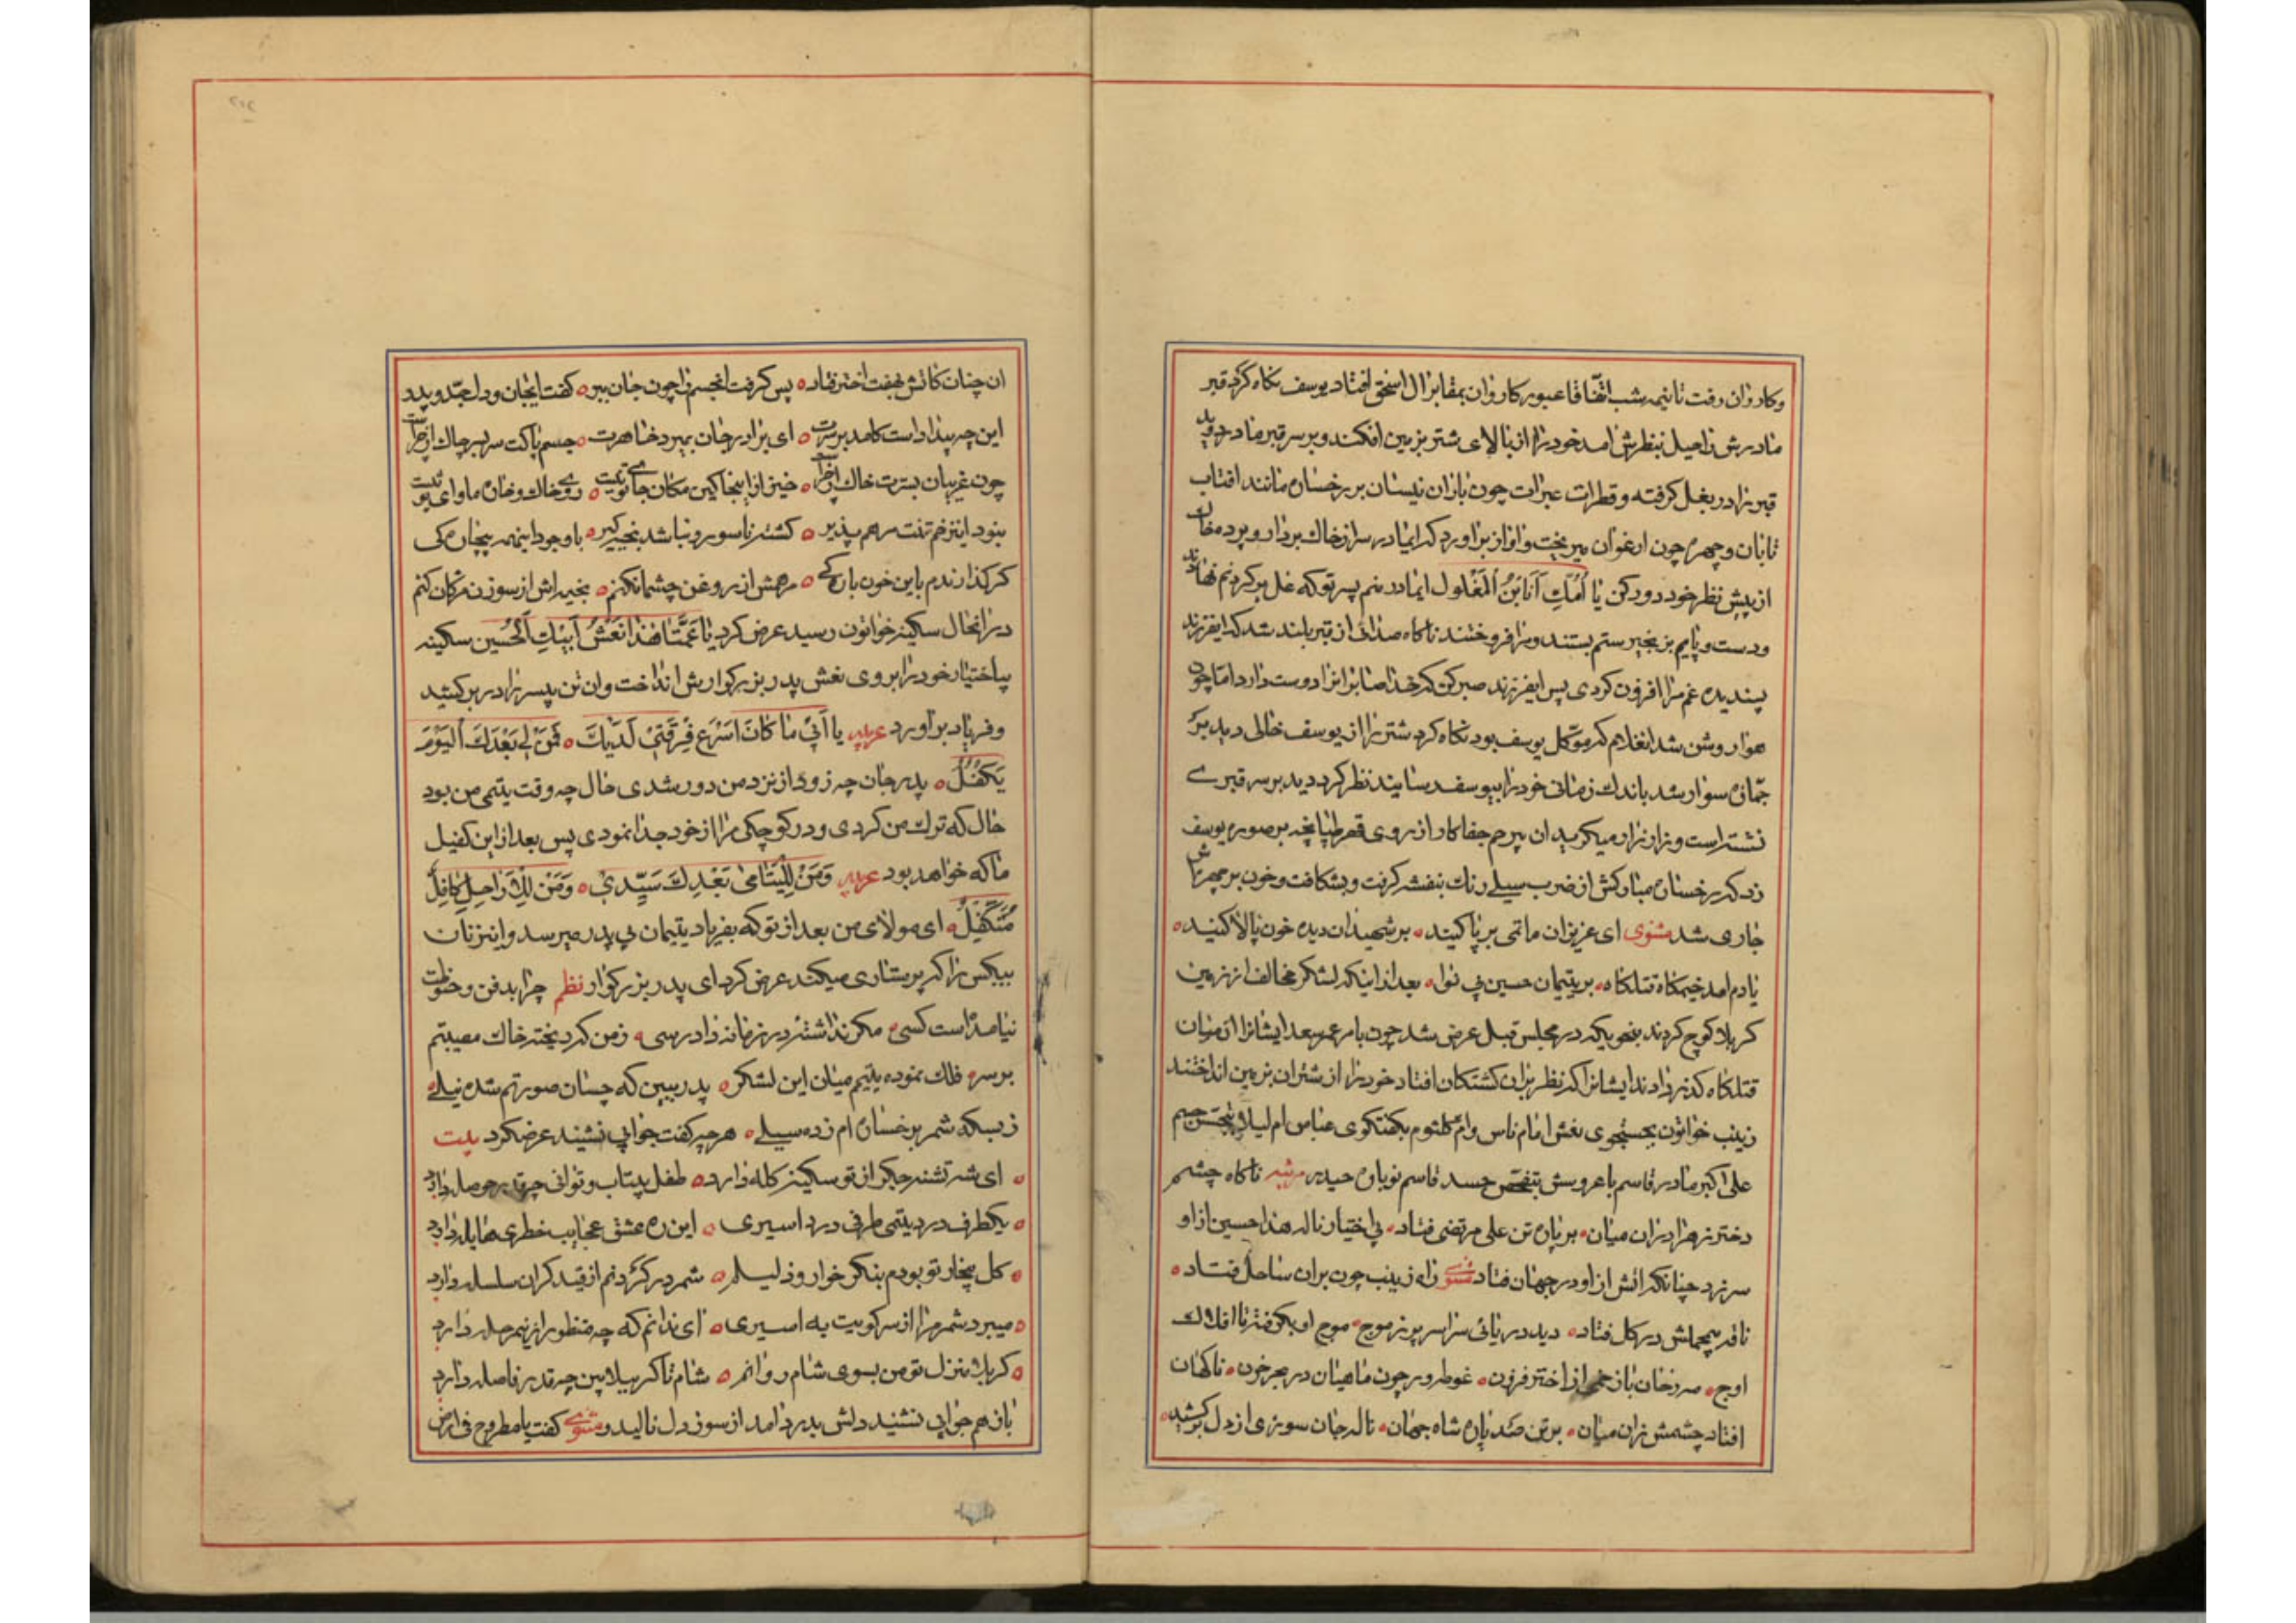 وکاروان رفت تا نیمه شب اتفاقا عبور کاروان بمقابر ال اسحق افتاد یوسف نکاه کرد قبر
مادرش راحیل بنظرش امد خود را از بالای شتر بزمین افکند و بر سر قبر مادر دوید
قبر را در بغل کرفته و قطرات عبرات چون باران نیسان بر رخسار مانند افتاب
تابان و چهره چون ارغوان میریخت و اواز براورد که ایمادر سر از خاک بردار و پرده
از پیش نظر خود دور کن یا اماه انا ابن المغلول ایمادر منم پسر تو که غل بر کردنم نهادند
ودست و پایم بزنجیر ستم بستند و مرا فروختند ناکاه صدائی از قبر بلند شد که ایفرزند
پسندیده غم مرا افزون کردی پس ایفرزند صبر کن که خدا صابرانرا دوست دارد اما چون
هوا روشن شد انغلام که موکل یوسف بود نکاه کرد شتر را از یوسف خالی دید بر
جمازه سوار شد باندک زمانی خود را بیوسف رسانید نظر کرد دید بر سر قبری
نشسته است و زار زار میکرید ان بیرحم جفاکار از روی قهر طپانچه بر صورت یوسف
زد که رخسار مبارکش از ضرب سیلی رنک بنفشه کرفت و بشکافت و خون بر چهره اش
جاری شد مثنوی ای عزیزان ماتمی بر پا کنید ه بر شهیدان دیده خون پالا کنید ه
یادم امد خیمکاه قتلکاه ه بر یتیمان حسین بی نوا ه بعد از اینکه لشکر مخالف از زمین
کربلا کوچ کردند بنحویکه در مجلس قبل عرض شد چون بامر عمر سعد ایشانرا از میان
قتلکاه کذر دادند ایشانرا که نظر بران کشتکان افتاد خود را از شتران بزمین انداختند
زینب خواتون بجستجوی نعش امام ناس وام کلثوم بکفتکوی عباس ام لیلا بتجسس جسم
علی اکبر مادر قاسم با عروسش بتفحص جسد قاسم نوباوه حیدر مرثیه ناکاه چشم
دختر زهرا دران میان ه بر پاره تن علی مرتضی فتاد ه بی اختیار ناله هذا حسین از او
سر زد چنانکه اتش از او در جهان فتاد مثنوی زاه زینب چون بران ساحل فتاد ه
ناقه بیحملش در کل فتاد ه دید دریائی سراسر پر ز موج ه موج او بکرفته تا افلاک
اوج ه از اختر فزون ه غوطه ور چون ماهیان در بحر خون ه ناکهان
افتاد چشمش زان میان ه بر تن صد پاره شاه جهان ه ناله جان سوزی از دل برکشید ه
ان چنان کاتش بهفت اختر فتاد ه پس کرفت انجسم را چون جان ببر ه کفت ایجان و دل جد و پدر
این چه بیداد است کامد بر سرت ه ای برادر جان بمیرد خواهرت ه جسم پاکت سر بسر چاک از چراست
چون غریبان بسترت خاک از چراست ه خیز از اینجا کین مکان جای تو نیست ه روی خاک و خاره ماوای تو نیست
نبود اینزخم تنت مرهم پذیر ه کشته ناسور و نباشد بخیه کیر ه باوجود اینهمه بیچارکی
کر کذارندم باین خون بارکی ه مرهمش از روغن چشمان کنم ه بخیه اش از سوزن مژکان کنم
در انحال سکینه خواتون رسید عرض کرد یا عمتا هذا نعش ابیک الحسین سکینه
بیاختیار خود را بروی نعش پدر بزرکوارش انداخت و ان تن بیسر را در بر کشید
وفریاد براورد عربیه یا ابی ما کان اسرع فرقتی لدیک ه فمن لی بعدک الیوم
یکفل ه پدر جان چه زود از نزد من دور شدی حال چه وقت یتیمی من بود
حال که ترک من کردی و در کوچکی مرا از خود جدا نمودی پس بعد از این کفیل
ما که خواهد بود عربیه ومن للیتامی بعدک سیدی ه ومن للارامل کافل
متکفل ه ای مولای من بعد از تو که بفریاد یتیمان بی پدر میرسد و اینزنان
بیکس را که پرستاری میکند عرض کرد ای پدر بزرکوار نظم چرا بدفن و حنوطت
نیامده است کسی ه مکر نداشتۀ در زمانه دادرسی ه زمن که کرد یخته خاک مصیبتم
بر سر ه فلک نموده یتیم میان این لشکر ه پدر ببین که چسان صورتم شده نیلی ه
ز بسکه شمر برخساره ام زده سیلی ه هر چه کفت جوابی نشنید عرضکرد بیت
ه ای شه تشنه جکر از تو سکینه کله دارد ه طفل بیتاب و توانی چقدر حوصله دارد
ه یکطرف درد یتیمی طرفی درد اسیری ه این ره عشق عجایب خطری هایله دارد
ه کل بیخار تو بودم بنکر خوار و ذلیلم ه شمر در کردنم از قید کران سلسله دارد
ه میبرد شمر مرا از سر کویت به اسیری ه ای ندانم که چه منظور از ینمرحله دارد
ه کربلا منزل تو من بسوی شام روانم ه شام تا کربوبلا بین چقدر فاصله دارد
باز هم جوابی نشنید دلش بدرد امد از سوز دل نالید و مثنوی کفت یا مطروح فی ارض